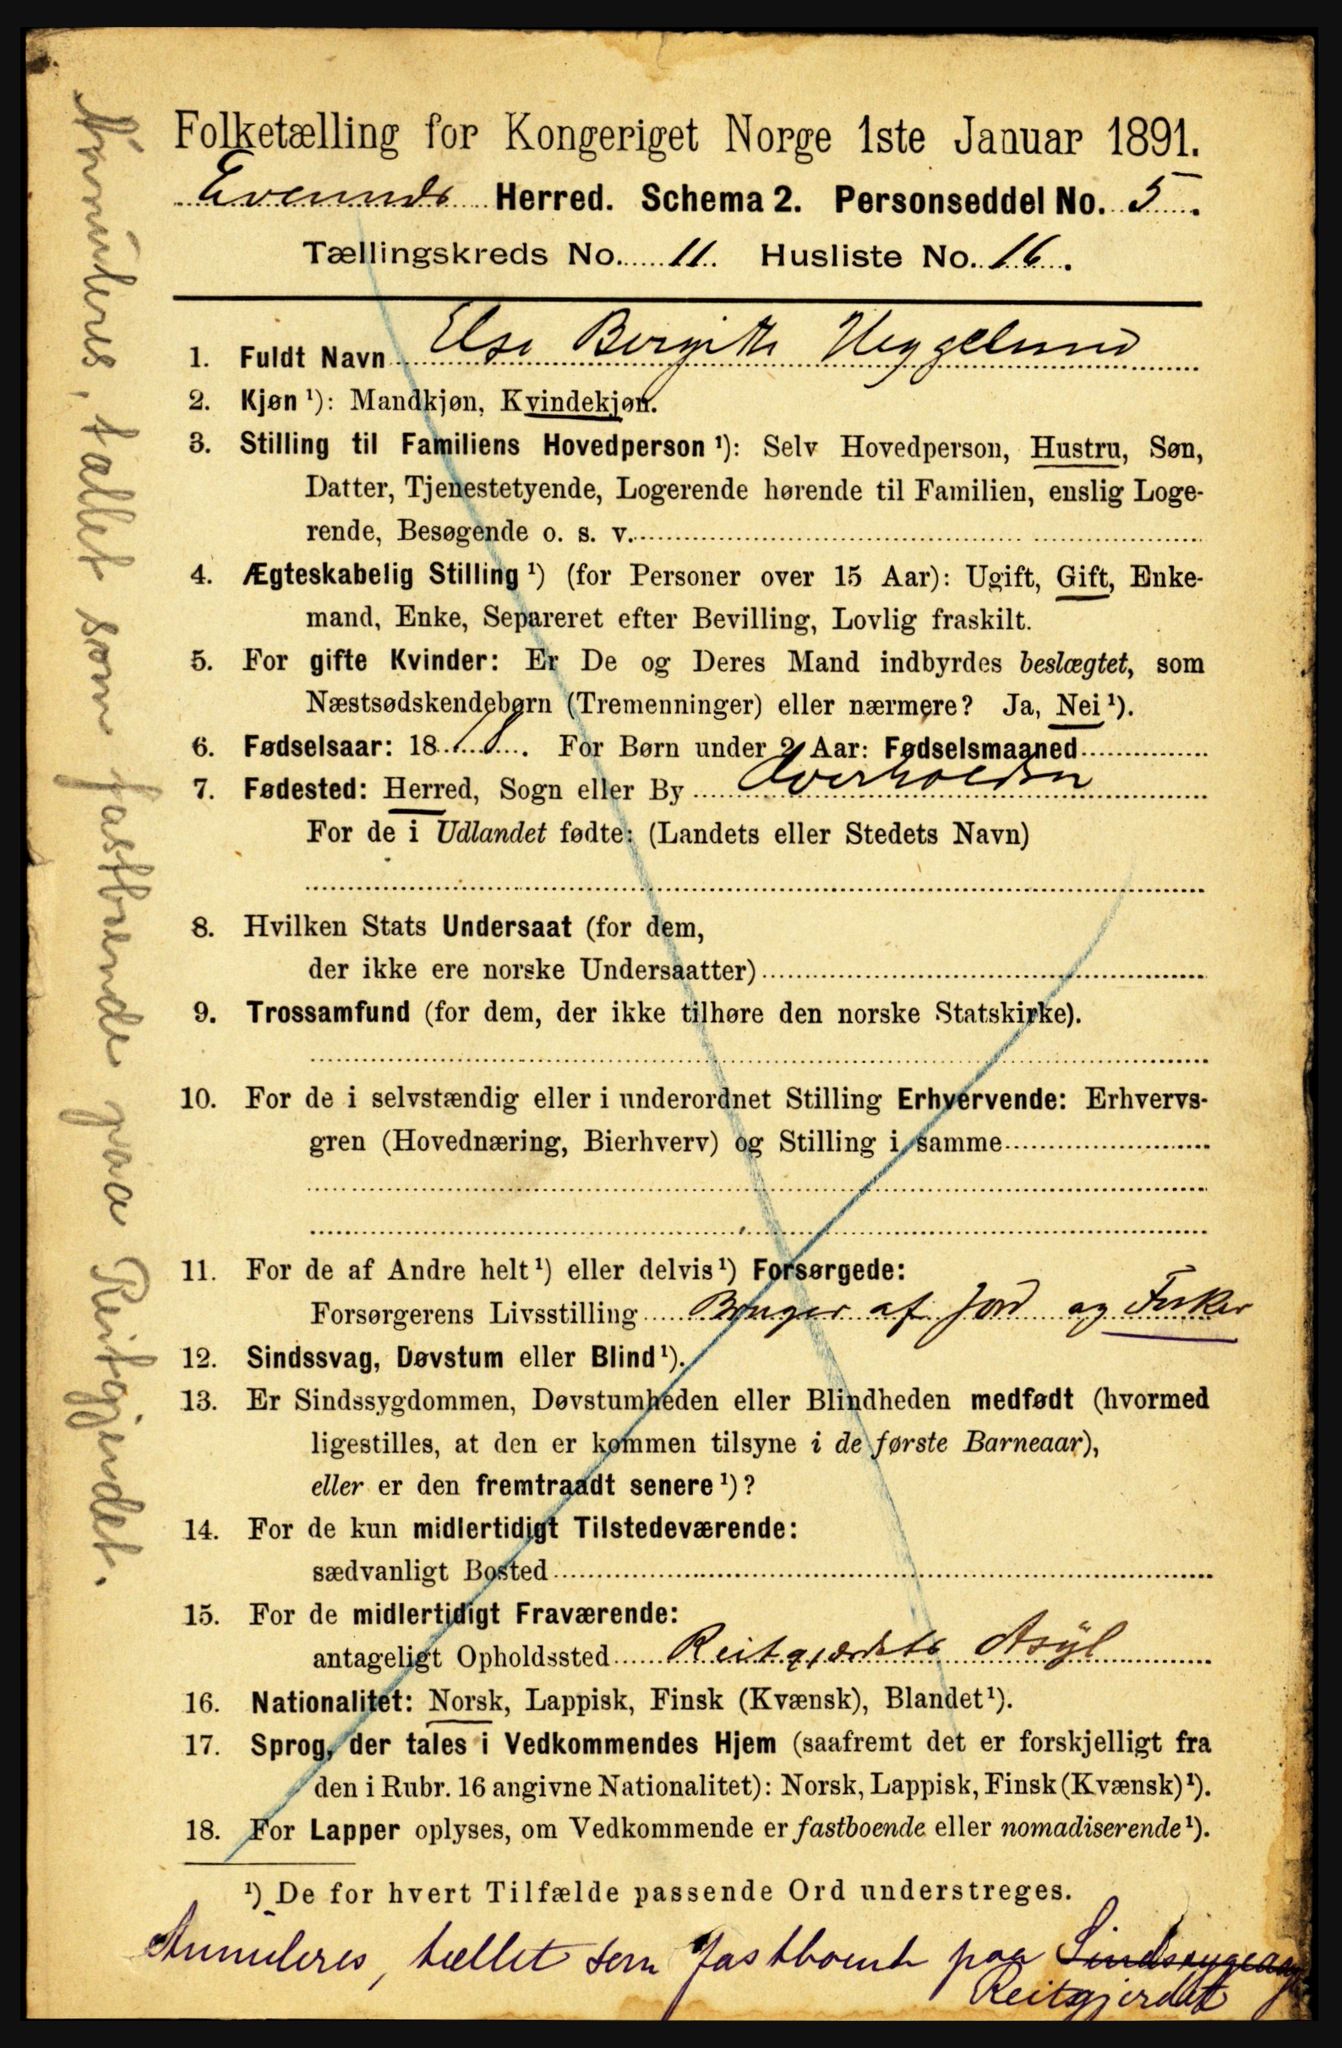 Folketælling for Kongeriget Norge 1ste Januar 1891.
Evennæs Herred. Schema 2. Personseddel No. 5.
Tællingskreds No. 11. Husliste No. 16.
1. Fuldt Navn Else Bergitte Heggelund
2. Kjøn ¹): Mandkjøn, Kvindekjøn.
3. Stilling til Familiens Hovedperson ¹): Selv Hovedperson, Hustru, Søn,
Datter, Tjenestetyende, Logerende hørende til Familien, enslig Loge-
rende, Besøgende o. s. v.
4. Ægteskabelig Stilling ¹) (for Personer over 15 Aar): Ugift, Gift, Enke-
mand, Enke, Separeret efter Bevilling, Lovlig fraskilt.
5. For gifte Kvinder: Er De og Deres Mand indbyrdes beslægtet, som
Næstsødskendebørn (Tremenninger) eller nærmere? Ja, Nei ¹).
6. Fødselsaar: 18 . For Børn under 2 Aar: Fødselsmaaned
7. Fødested: Herred, Sogn eller By Overhalden
For de i Udlandet fødte: (Landets eller Stedets Navn)
8. Hvilken Stats Undersaat (for dem,
der ikke ere norske Undersaatter)
9. Trossamfund (for dem, der ikke tilhøre den norske Statskirke).
10. For de i selvstændig eller i underordnet Stilling Erhvervende: Erhvervs-
gren (Hovednæring, Bierhverv) og Stilling i samme
11. For de af Andre helt ¹) eller delvis ¹) Forsørgede:
Forsørgerens Livsstilling Bruger af Jord og Fisker
12. Sindssvag, Døvstum eller Blind ¹).
13. Er Sindssygdommen, Døvstumheden eller Blindheden medfødt (hvormed
ligestilles, at den er kommen tilsyne i de første Barneaar),
eller er den fremtraadt senere ¹)?
14. For de kun midlertidigt Tilstedeværende:
sædvanligt Bosted
15. For de midlertidigt Fraværende:
antageligt Opholdssted Reitgjærdets Asÿl
16. Nationalitet: Norsk, Lappisk, Finsk (Kvænsk), Blandet ¹).
17. Sprog, der tales i Vedkommendes Hjem (saafremt det er forskjelligt fra
den i Rubr. 16 angivne Nationalitet): Norsk, Lappisk, Finsk (Kvænsk) ¹).
18. For Lapper oplyses, om Vedkommende er fastboende eller nomadiserende ¹).
¹) De for hvert Tilfælde passende Ord understreges.
Annuleres, tællet som fastboende paa
Reitgjerdet
Annuleres, tællet som fastboende paa Reitgjerdet.